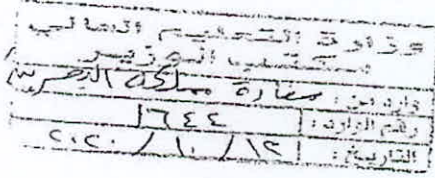 وزارة التعليم العالي
مكتب الوزير
وارد من : سفارة مملكة البحرين
رقم الوارد : ١٦٤٤
التاريخ : ١٢ / ١٠ / ٢٠٢٠